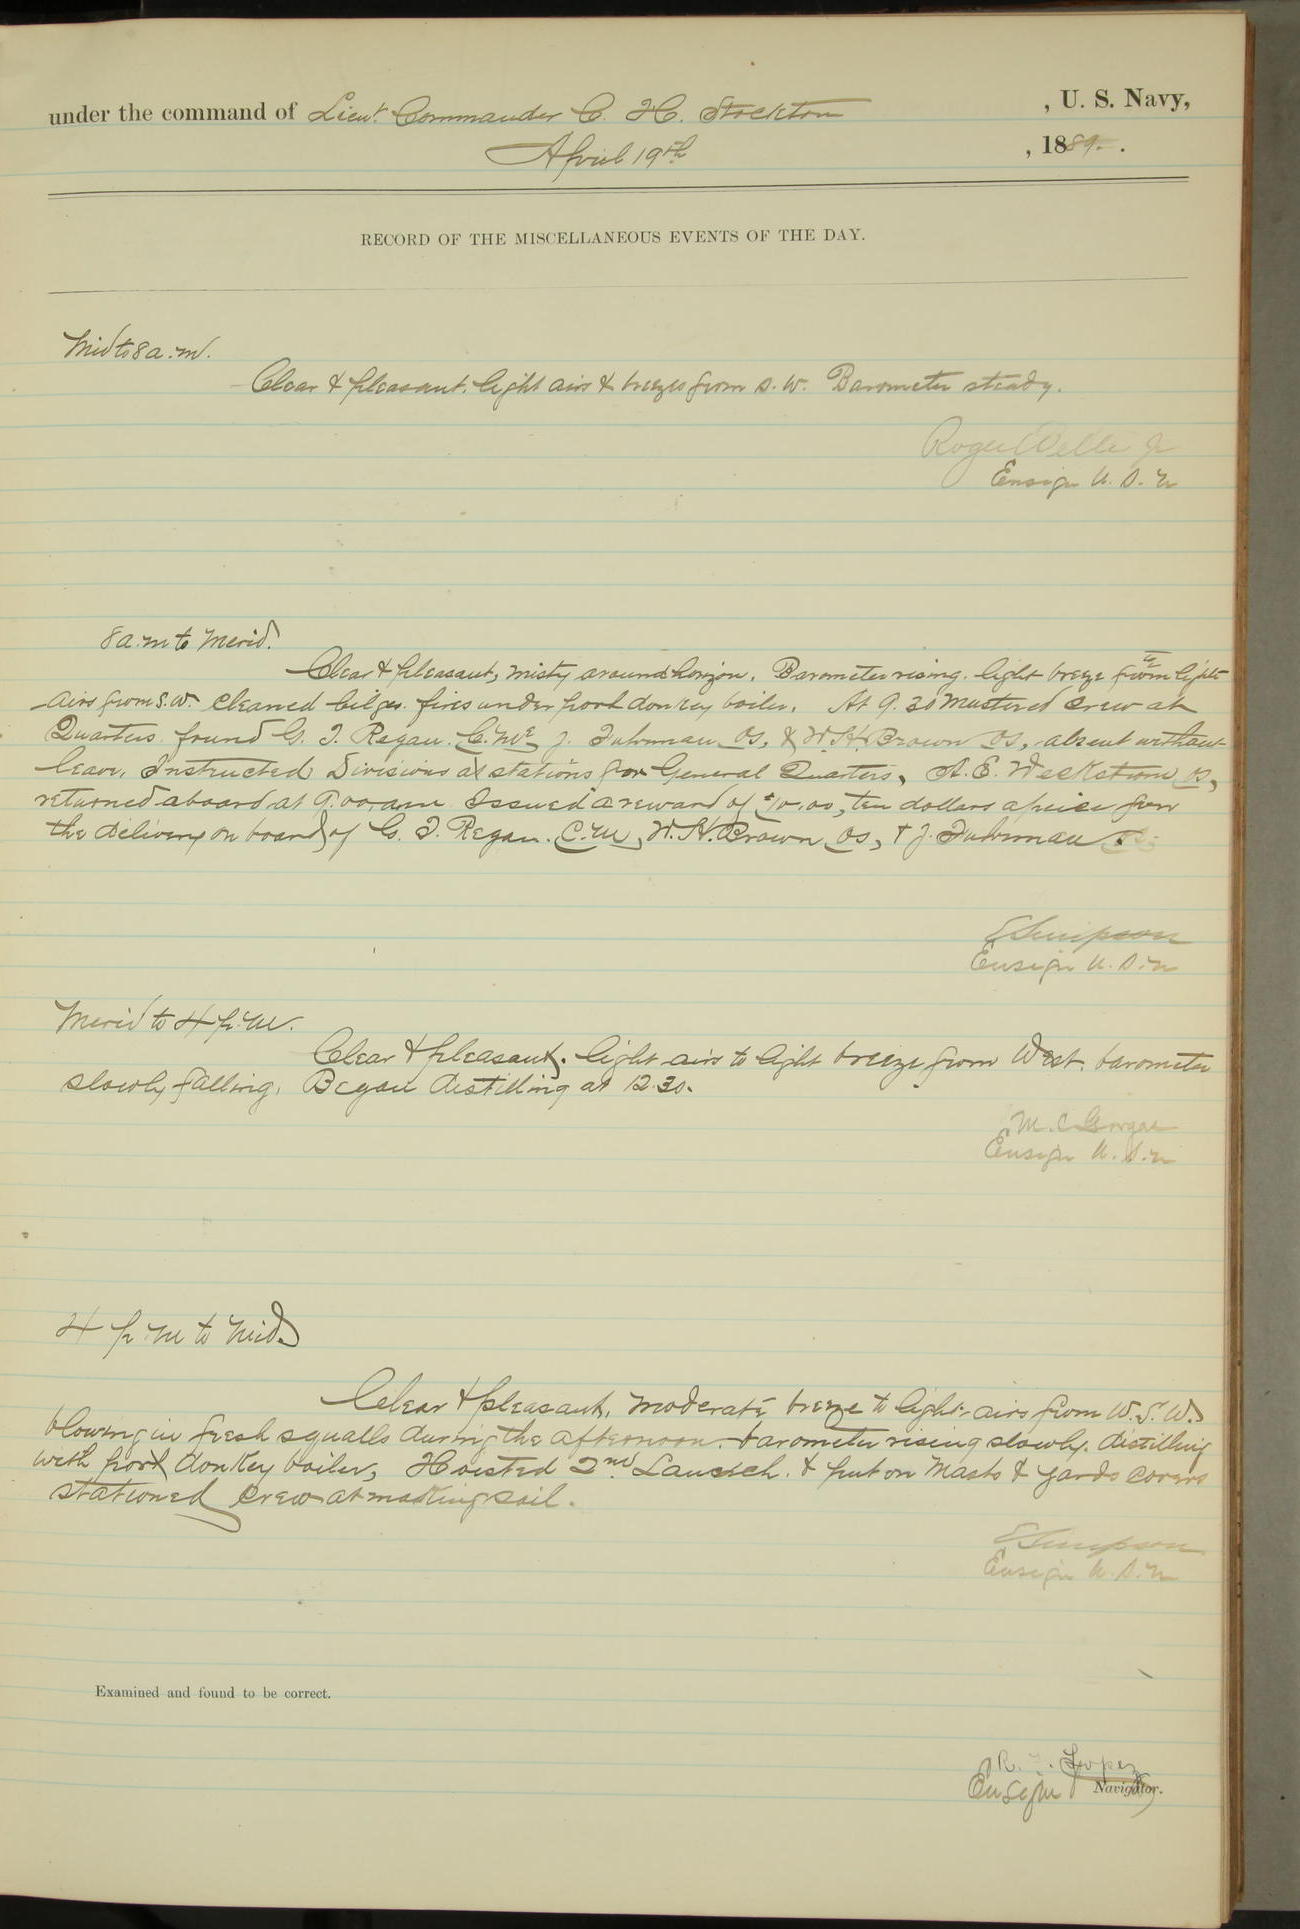 under the command of Lieut. Commander C. H. Stockton , U. S. Navy,
April 19th , 1889. .
RECORD OF THE MISCELLANEOUS EVENTS OF THE DAY.
Mid to 8 a.m.
Clear & pleasant, light airs & breezes from S. W. Barometer steady.
Roger Welles Jr
Ensign U. S. N
8 a.m to Merid.
Clear & pleasant, misty around horizon. Barometer rising. light breeze from light
airs from S.W. Cleaned bilges. fires under port donkey boiler. At 9.30 Mustered Crew at
Quarters found G. I. Regan. C.M. J. Fuhrman OS, & W.H. Brown OS, absent without
leave, Instructed Divisions at stations for General Quarters, A. E. Weckstrom OS,
returned aboard at 9.00, am Issued a reward of $10.00, ten dollars apeice for
the delivery on board of G. I. Regan. C.M, W. H. Brown OS, & J. Fuhrman OS.
E Simpson
Ensign U. S. N
Merid to 4 p.m.
Clear & pleasant. light airs to light breeze from West. barometer
slowly falling. Began distilling at 12.30.
M. C Gorgas
Ensign U. S. N
4 p.m to Mid.
Clear & pleasant, moderate breeze to light airs from W.S.W.
blowing in fresh squalls during the afternoon. barometer rising slowly. distilling
with port donkey boiler, Hoisted 2nd Launch. & put on Masts & yards covers
stationed Crew at making sail.
E Simpson
Ensign U. S. N
Examined and found to be correct.
R. Lopez
Ensign Navigator.